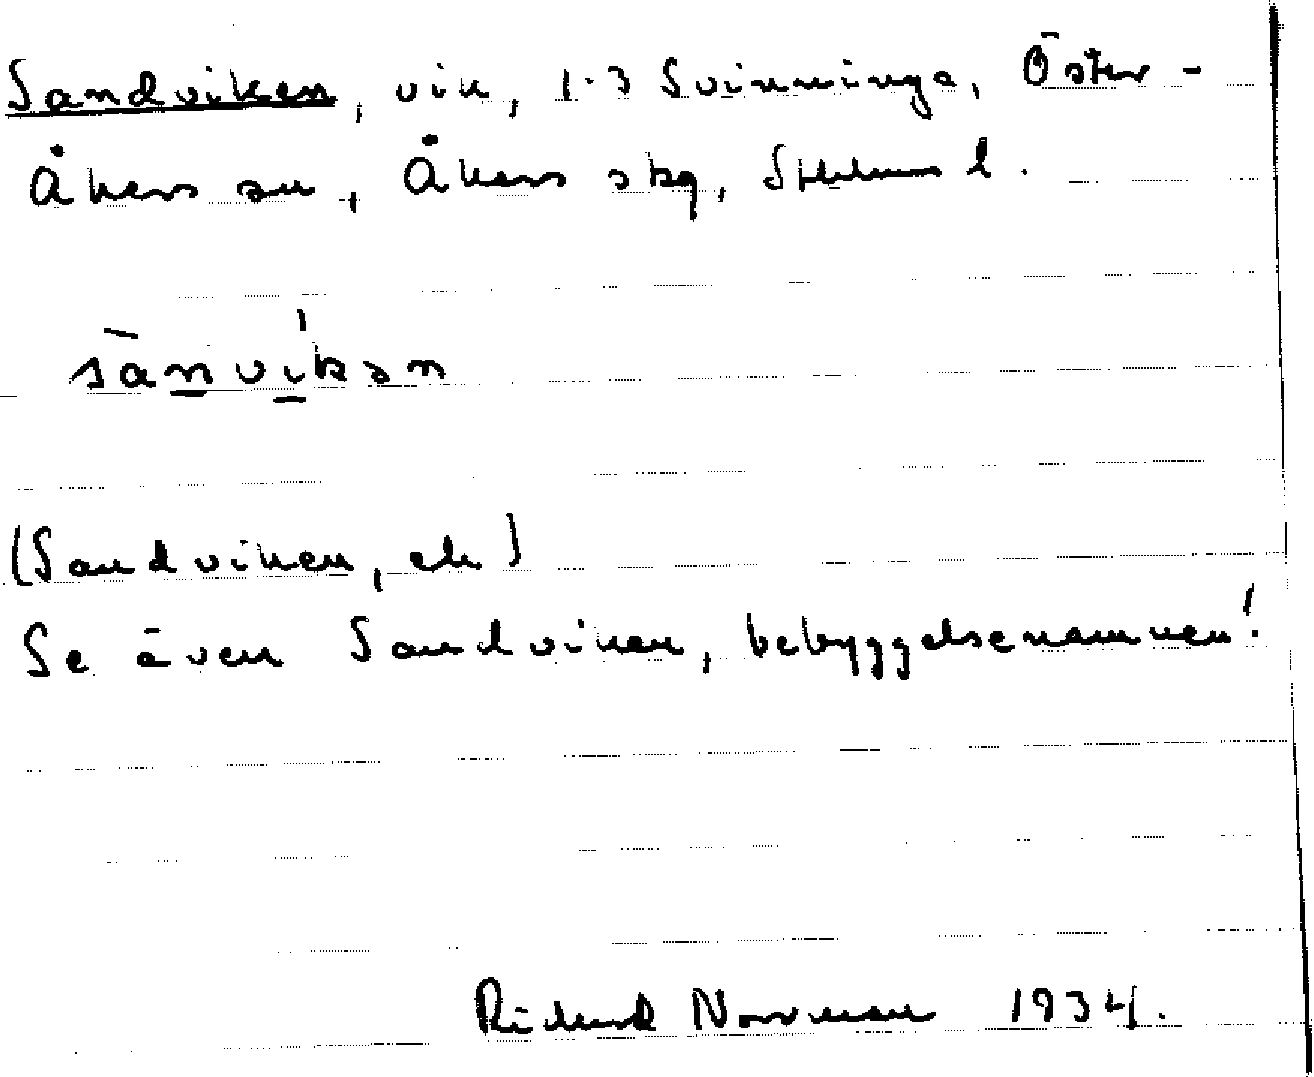 Sandviken, vik, 1-3 Svinninge, Öster-
Åkers sn, Åkers skg, Sthlms l.
sànvíkən
(Sandviken, ek)
Se även Sandviken, bebyggelsenamnen!
Rickard Norrman 1934.